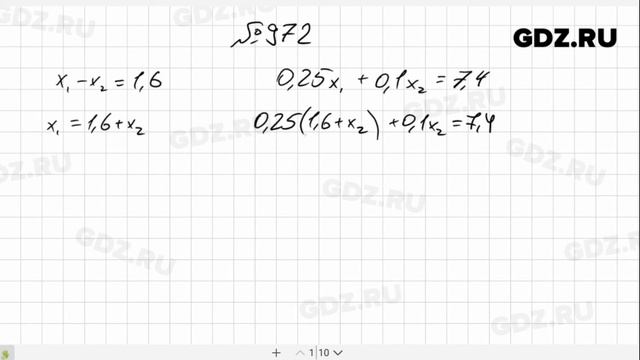 №972
GDZ.RU
x₁ - x₂ = 1,6
0,25x₁ + 0,1x₂ = 7,4
x₁ = 1,6 + x₂
0,25(1,6 + x₂) + 0,1x₂ = 7,4
GDZ.RU
GDZ.RU
GDZ.RU
GDZ.RU
GDZ.RU
GDZ.RU
GDZ.RU
GDZ.RU
GDZ.RU
GDZ.RU
+ 1|10